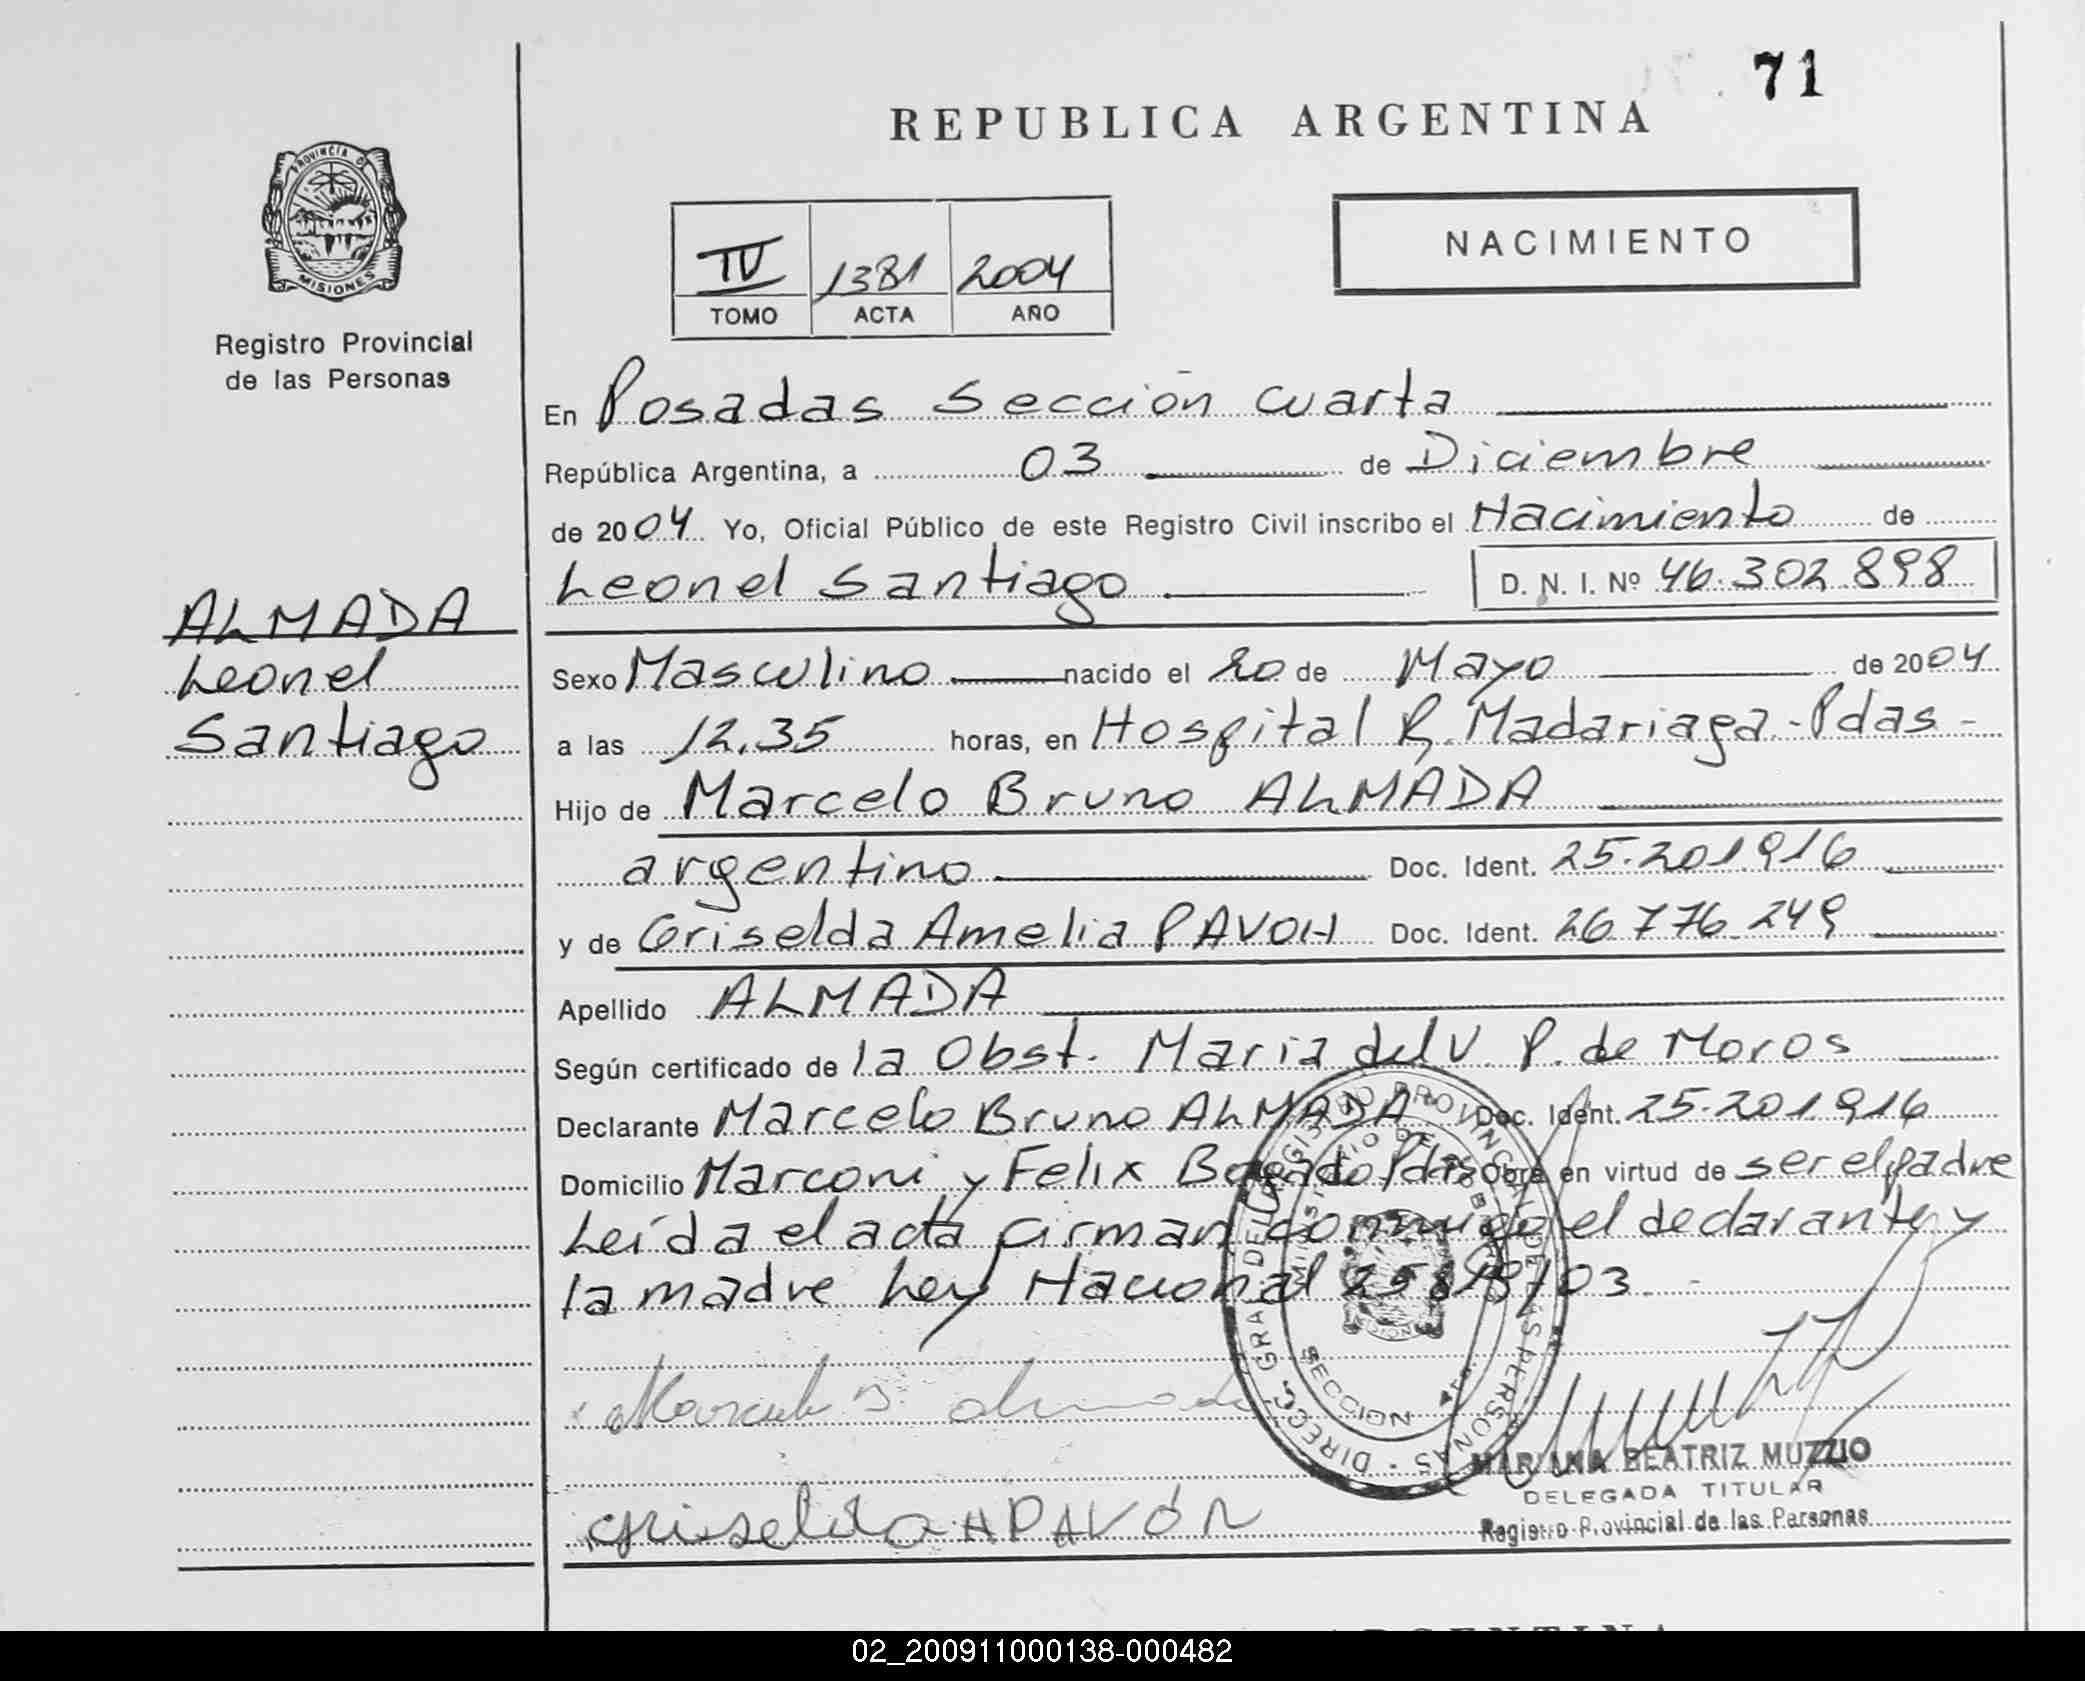 71
REPUBLICA ARGENTINA
PROVINCIA DE
MISIONES
Registro Provincial
de las Personas
IV 1381 2004
TOMO ACTA AÑO
NACIMIENTO
En Posadas Sección Cuarta
República Argentina, a 03 de Diciembre
de 2004 Yo, Oficial Público de este Registro Civil inscribo el Nacimiento de
Leonel Santiago D. N. I. Nº 46.302.898
ALMADA
Leonel
Santiago
Sexo Masculino nacido el 20 de Mayo de 2004
a las 12.35 horas, en Hospital R. Madariaga-Pdas-
Hijo de Marcelo Bruno ALMADA
argentino Doc. Ident. 25.201.916
y de Griselda Amelia PAVON Doc. Ident. 26.776.249
Apellido ALMADA
Según certificado de la Obst. Maria del V. P. de Moros
Declarante Marcelo Bruno ALMADA Doc. Ident. 25.201.916
Domicilio Marconi y Felix Bogado Pdas Obra en virtud de ser el padre
Leída el acta firman conmigo el declarante y
la madre Ley Nacional 25819/03.-
DIRECC. GRAL. DEL REGISTRO PROVINCIAL DE LAS PERSONAS
MINISTERIO DE GOBIERNO
SECCION 4ta.
Marcelo B. Almada
Griselda A PAVÓN
MARIANA BEATRIZ MUZZIO
DELEGADA TITULAR
Registro Provincial de las Personas
ARGENTINA
02_200911000138-000482